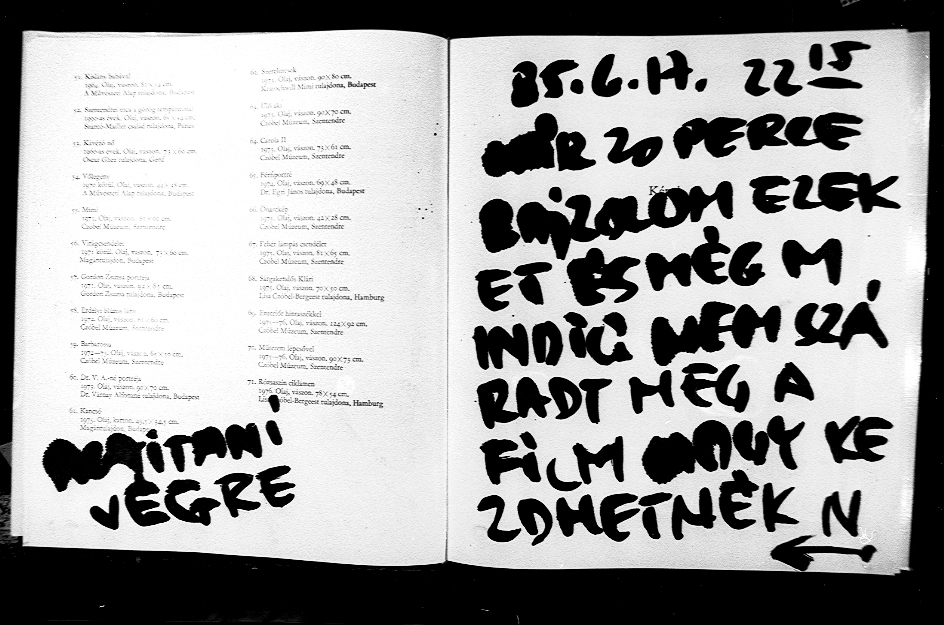 51. Kislány babával
A Művészeti Alap tulajdona, Budapest
52. Szentendrei utca a görög templommal
Szántó-Mailler család tulajdona, Párizs
53. Kávézó nő
1960-as évek. Olaj, vászon. 73 × 60 cm.
Oscar Ghez tulajdona, Genf
54. Vőlegény
A Művészeti Alap tulajdona, Budapest
55. Mimi
Czóbel Múzeum, Szentendre
56. Virágcsendélet
Magántulajdon, Budapest
57. Gordon Zsuzsa portréja
Gordon Zsuzsa tulajdona, Budapest
58.
Czóbel Múzeum, Szentendre
59. Barbarossa
Czóbel Múzeum, Szentendre
60. Dr. V. A.-né portréja
1973. Olaj, vászon. 90 × 70 cm.
Dr. Várnay Alfonzné tulajdona, Budapest
61. Kancsó
1973. Olaj, karton.
Magántulajdon, Budapest
62. Szerelmesek
1971. Olaj, vászon. 90 × 80 cm.
tulajdona, Budapest
63.
1971. Olaj, vászon. 90 × 70 cm.
Czóbel Múzeum, Szentendre
64. Carola II
1973. Olaj, vászon. 73 × 61 cm.
Czóbel Múzeum, Szentendre
65. Férfiportré
1974. Olaj, vászon. 69 × 48 cm.
Dr. Egri János tulajdona, Budapest
66. Önarckép
1971. Olaj, vászon. 42 × 28 cm.
Czóbel Múzeum, Szentendre
67. Fehér lámpás csendélet
1975. Olaj, vászon. 81 × 65 cm.
Czóbel Múzeum, Szentendre
68. Sárgakendős Klári
1975. Olaj, vászon. 70 × 50 cm.
Lisa Czóbel-Bergeest tulajdona, Hamburg
69. Enteriőr hintaszékkel
1975–76. Olaj, vászon. 124 × 92 cm.
Czóbel Múzeum, Szentendre
70. Műterem lépcsővel
1975–76. Olaj, vászon. 90 × 75 cm.
Czóbel Múzeum, Szentendre
71. Rózsaszín ciklámen
1976. Olaj, vászon. 78 × 54 cm.
Lisa Czóbel-Bergeest tulajdona, Hamburg
AGYÍTANI
VÉGRE
85.6.17. 22 15
MÁR 20 PERCE
RAJZOLOM EZEK
ET ÉS MÉG M
INDIG NEM SZÁ
RADT MEG A
FILM HOGY KE
ZDHETNÉK N